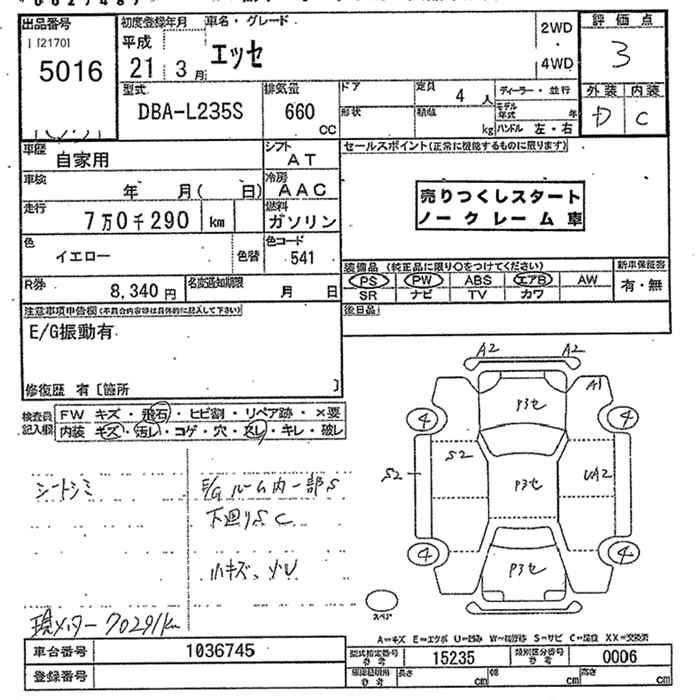 出品番号
5016
初度登録年月
平成
21 3月
車名・グレード
エッセ
2WD
4WD
評価点
3
外装 内装
D C
型式
DBA-L235S
排気量
660
CC
ドア
形状
定員
4 人
積載
kg
ディーラー・並行
モデル年式 年
ハンドル 左・右
車歴
自家用
シフト
AT
車検
年 月( 日)
冷房
AAC
走行
7万0千290 km
燃料
ガソリン
色
イエロー
色替
色コード
541
R券
8,340円
名変通知期限
月 日
セールスポイント(正常に機能するものに限ります)
売りつくしスタート
ノークレーム車
装備品 (純正品に限り○をつけてください)
PS PW ABS エアB AW
SR ナビ TV カワ
新車保証書
有・無
後日品
注意事項申告欄(不具合内容等は具体的に記入して下さい)
E/G振動有
修復歴 有〔箇所 〕
検査員
記入欄
FW キズ・飛石・ヒビ割・リペア跡・×要
内装 キズ・汚レ・コゲ・穴・スレ・キレ・破レ
シートシミ
E/Gルーム内一部S
下廻りS C
小キズ、
現メーター 70291km
A2 A2
P3セ
A1
4 4
S2
S2
P3セ
UA2
4 4
P3セ
スペア
A=キズ E=エクボ U=凹み W=補修跡 S=サビ C=腐蝕 XX=交換済
車台番号
1036745
登録番号
型式指定番号
参考
15235
類別区分番号
参考
0006
参考
長さ cm
幅 cm
高さ cm